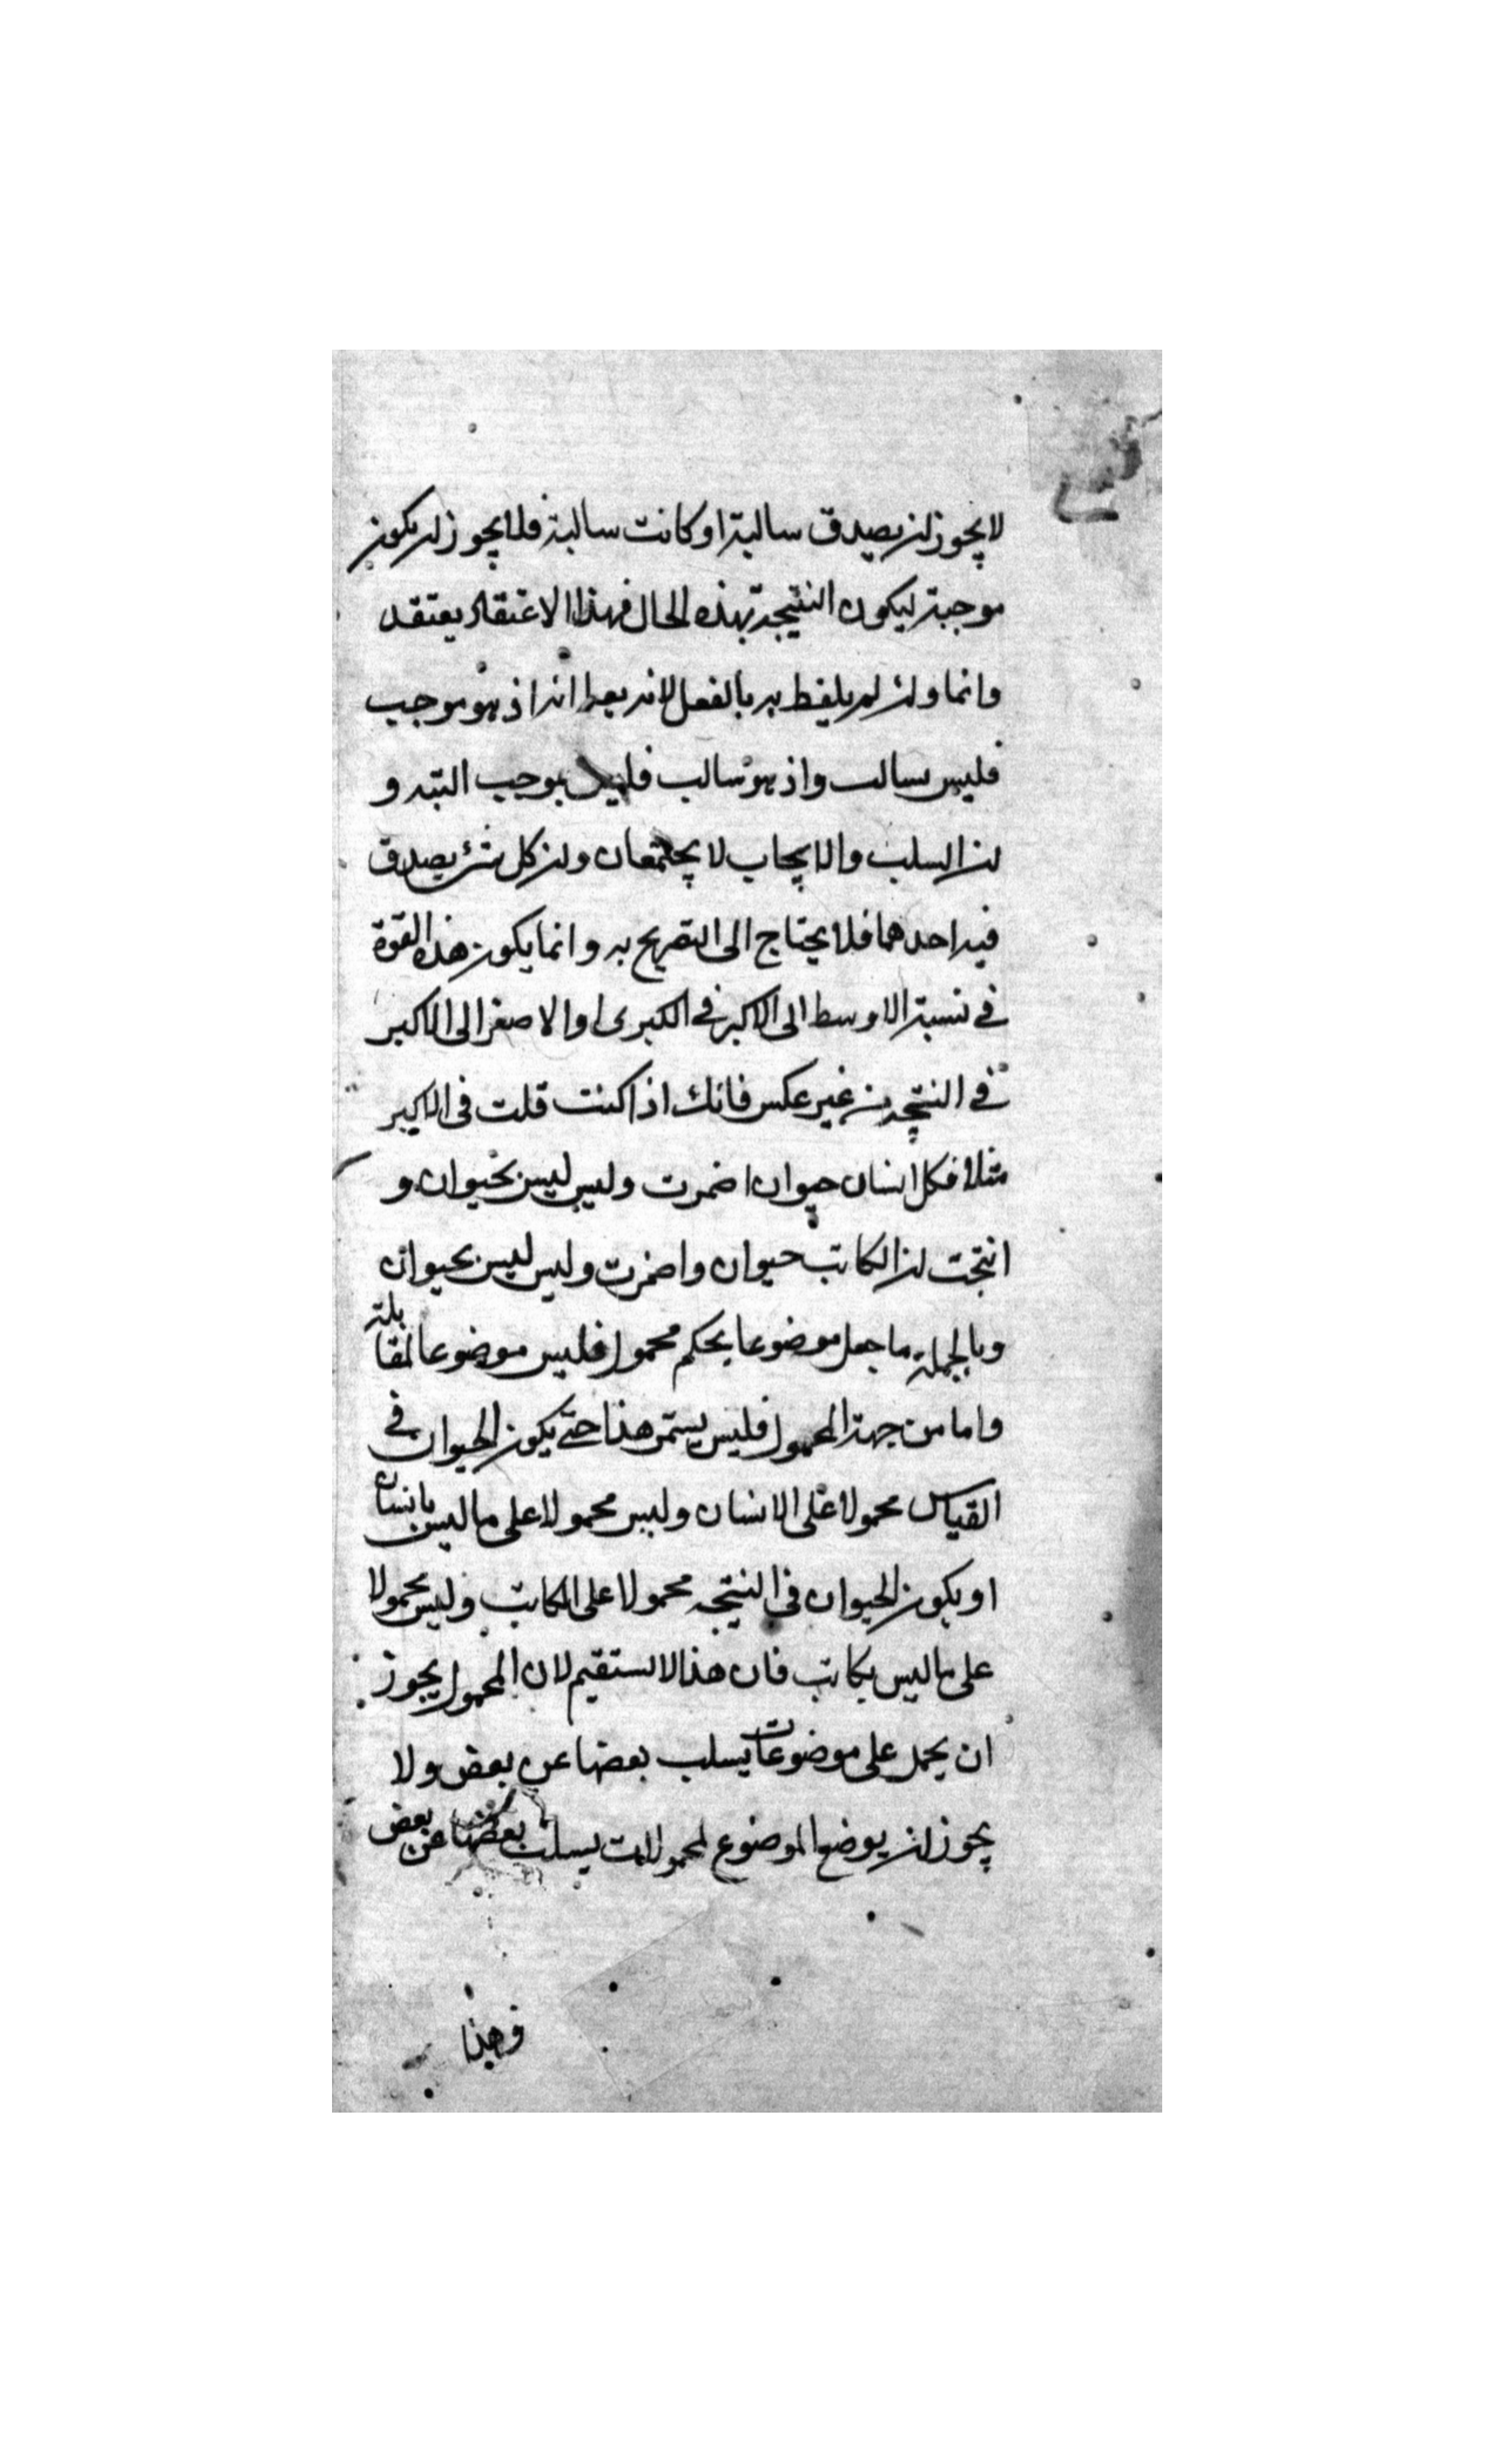 لا يجوز ان يصدق سالبة او كانت سالبة فلا يجوز ان يكون
موجبة ليكون النتيجة بهذه الحال فهذا الاعتقاد يعتقد
دائما وان لم يلفظ به بالفعل لانه يعلم انه اذ هو موجب
فليس بسالب واذ هو سالب فليس بموجب البتة و
ان السلب والايجاب لا يجتمعان وان كل شئ يصدق
فيه احدهما فلا يحتاج الى التصريح به وانما يكون هذه القوة
في نسبة الاوسط الى الاكبر في الكبرى او الاصغر الى الاكبر
في النتيجة من غير عكس فانك اذا كنت قلت في الاكبر
مثلا فكل انسان حيوان اضمرت وليس ليس بحيوان و
انتجت ان الكاتب حيوان واضمرت وليس ليس بحيوان
وبالجملة ما جعل موضوعا بحكم محمول فليس موضوعا لمقابله
واما من جهة المحمول فليس يستمر هذا حتى يكون الحيوان في
القياس محمولا على الانسان وليس محمولا على ما ليس بانسان
او يكون الحيوان في النتيجه محمولا على الكاتب وليس محمولا
على ما ليس بكاتب فان هذا لا يستقيم لان المحمول يجوز
ان يحمل على موضوعات يسلب بعضها عن بعض ولا
يجوز ان يوضع الموضوع لمحمولات يسلب بعضها عن بعض
وهذا